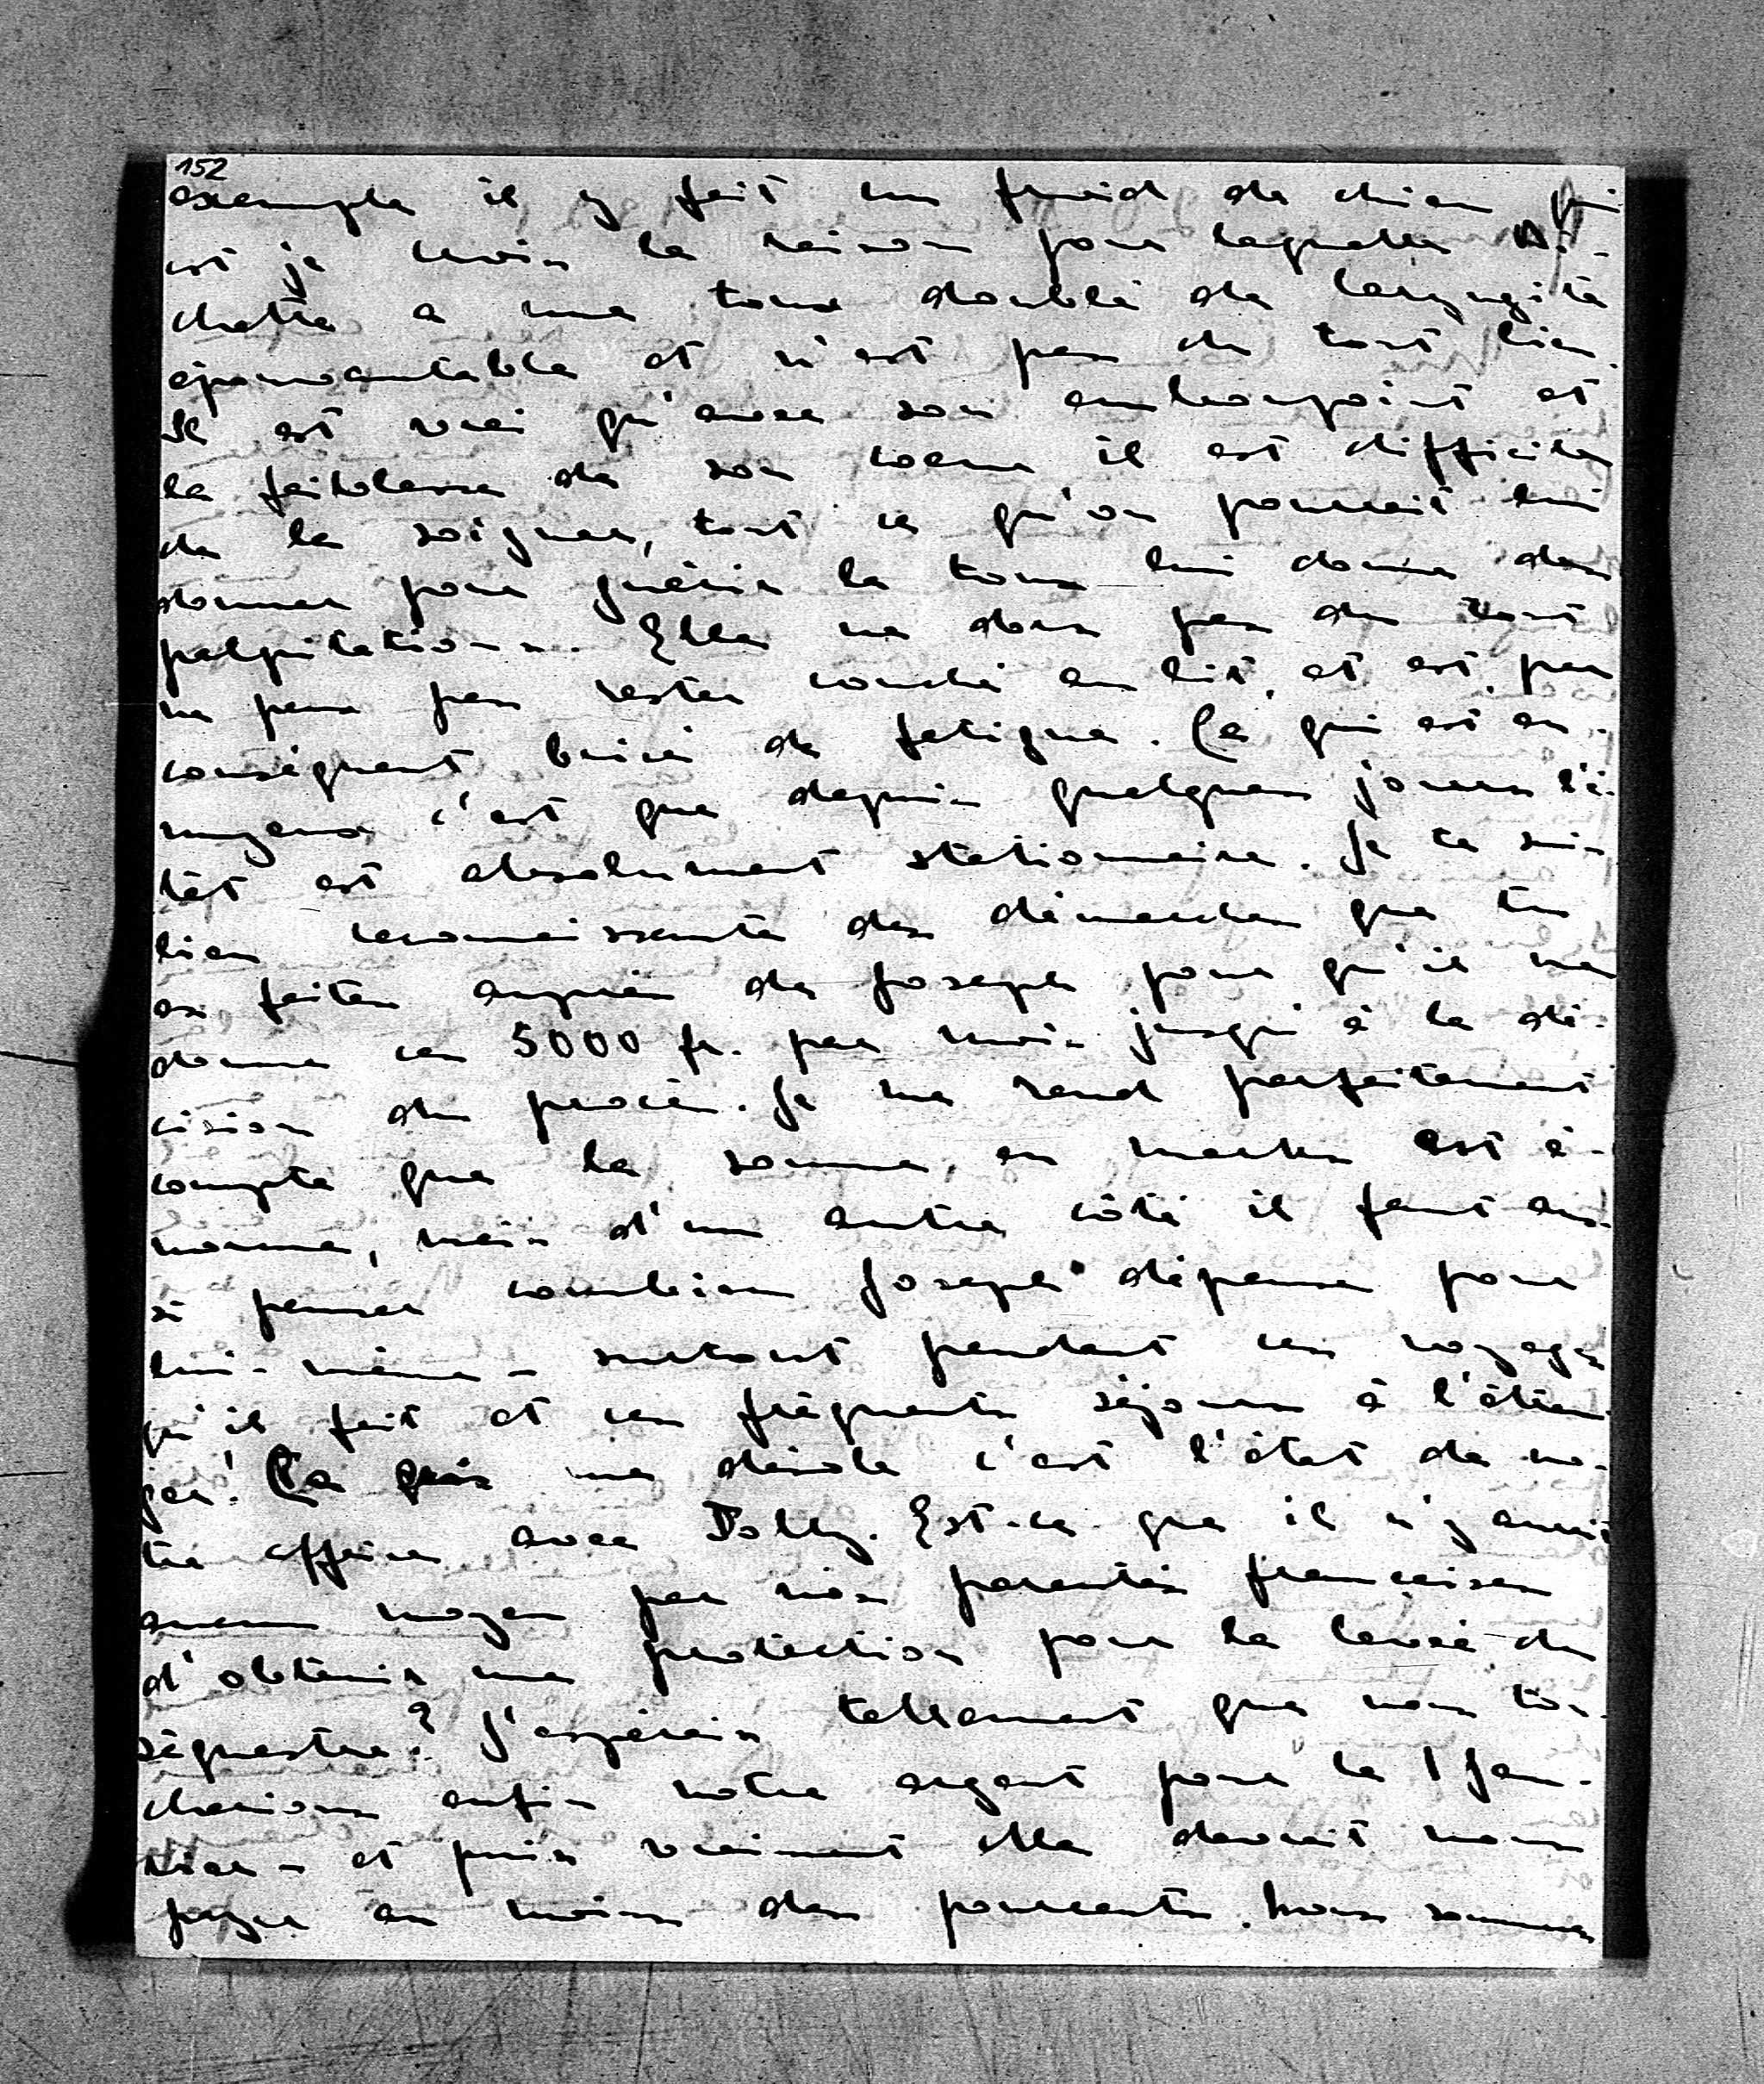 152
exemple il y fait un froid de chien qui
est je crois la raison pour laquelle
chette a une toux doublé de laryngite
épouvantable et n'est pas du tout bien.
Il est vrai qu'avec son embonpoint et
la faiblesse de son coeur il est difficile
de la soigner, tout ce qu'on pourrait lui
donner pour guérir la toux lui donne des
palpitations. Elle ne dors pas du tout
ne peux pas rester couché au lit, et est par
conséquent brisé de fatigue. Ce qui est en-
nuyeux c'est que depuis quelques jours l'é-
tat est absolument stationnaire. Je te suis
bien reconnaissante des démarches que tu
as faites auprès de Joseph pour qu'il me
donne ces 5000 fr. par mois jusqu'à la dé-
cision du procès. Je me rend parfaitement
compte que la somme, en marks est é-
norme, mais d'un autre côté il faut aus-
si penser combien Joseph dépense pour
lui-même - surtout pendant ces voyages
qu'il fait et ces fréquents séjours à l'étran-
ger! Ce qui me désole c'est l'état de no-
tre affaire avec Dolly. Est-ce que il n'y aurait
aucun moyen par nos parentés françaises
d'obtenir une protection pour la levée du
séquestre? J'espérais tellement que nous tou-
cherions enfin notre argent pour le 1 Jan-
vier - et puis vraiment elle devrait nous
payer au moins des pourcents. Nous sommes